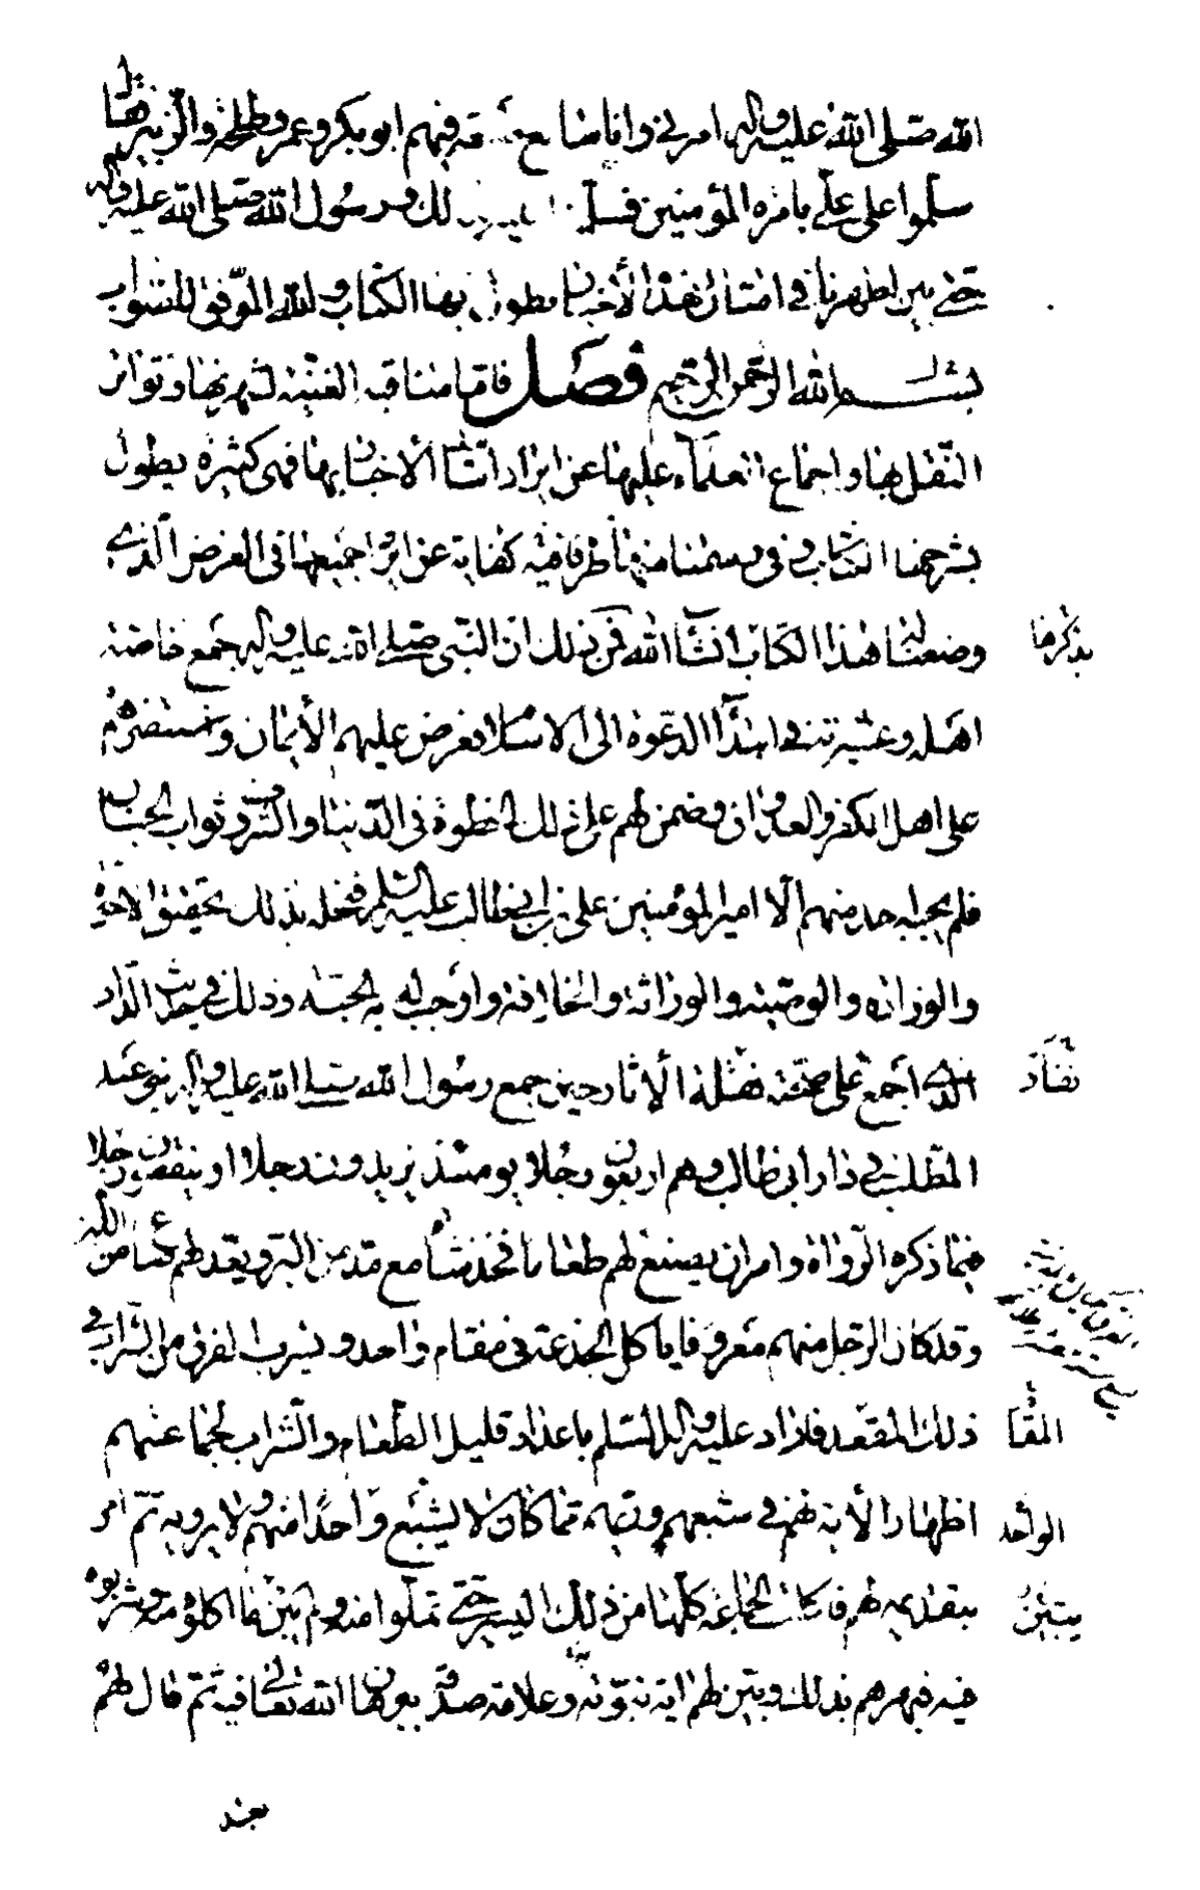 الله صلى الله عليه وآله امرني وانا سابع سبعة فيهم ابو بكر وعمر وطلحة والزبير فقال
سلّموا على علي بامرة المؤمنين فسلمنا عليه بذلك ورسول الله صلى الله عليه وآله
حيّ بين اظهرنا في امثال لهذه الأخبار يطول بها الكتاب والله الموفق للصواب
بسم الله الرحمن الرحيم فصل فاما مناقبه الغنية لشهرتها وتواتر
النقل بها واجماع العلماء عليها عن ايراد اسانيد الاخبار بها فهي كثيرة يطول
بشرحها الكتاب وفي رسمنا منها طرفا فيه كفاية عن ايراد جميعها في الغرض الذي
وضعنا له هذا الكتاب انشاء الله فمن ذلك ان النبي صلى الله عليه وآله جمع خاصة
اهله وعشيرته في ابتداء الدعوة الى الاسلام فعرض عليهم الأيمان واستنصرهم
على اهل الكفر والعدوان وضمن لهم على ذلك الحظوة في الدنيا والشرف وثواب الجنان
فلم يجبه احد منهم الّا امير المؤمنين علي بن ابي طالب عليه السلم فنحله بذلك تحقيق الاخوة
والوزارة والوصية والوراثة والخلافة واوجب له به الجنة وذلك في حديث الدار
الذي اجمع على صحته نقلة الآثار حين جمع رسول الله صلى الله عليه وآله بني عبد
المطلب في دار ابي طالب وهم اربعون رجلا يومئذ يزيدون رجلا او ينقصون رجلا
فيما ذكره الرواة وامر ان يصنع لهم طعاما فخذ شاة مع مد من البر ويعد لهم صاع من اللبن
وقد كان الرجل منهم معروفا يأكل الجذعة في مقام واحد ويشرب الفرق من الشراب في
ذلك المقعد فاراد عليه وآله السلم باعداد قليل الطعام والشراب لجماعتهم
اظهار الآية لهم في شبعهم وريهم مما كان لا يشبع واحدا منهم ولا يرويه ثم امر
بتقديمه لهم فاكلت الجماعة كلها من ذلك اليسير حتى تملّوا منه ولم يبن ما اكلوه منه وشربوه
فيه فبهرهم بذلك وبين لهم اية نبوته وعلامة صدقه ببرهان الله تعالى فيه ثم قال لهم
بعد
بذكرها
نقاد
المقام
الواحد
يتبين